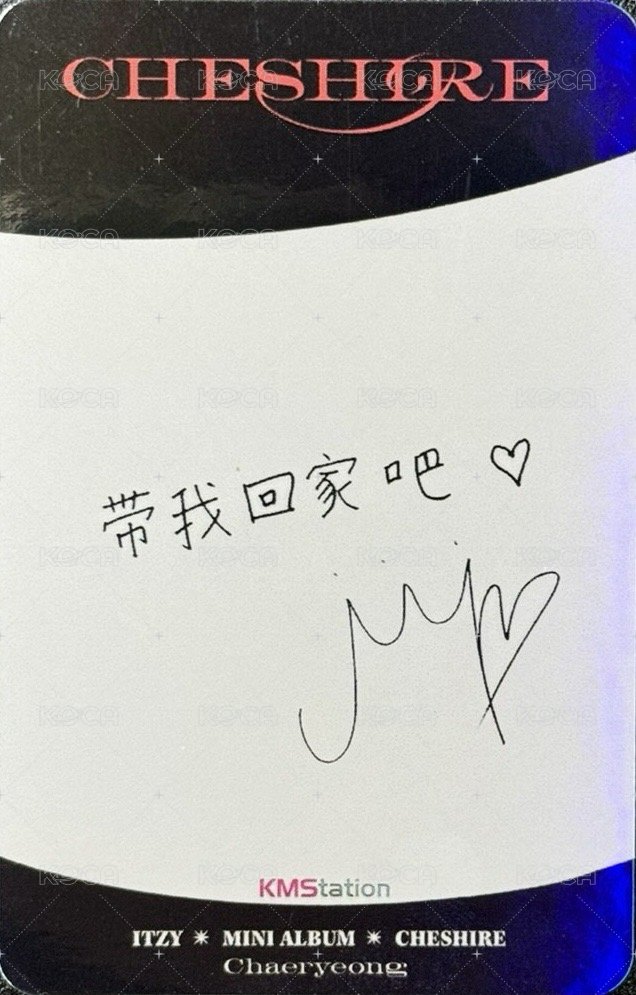 CHESHIRE
带我回家吧♡
KMStation
ITZY ✷ MINI ALBUM ✷ CHESHIRE
Chaeryeong
KOCA